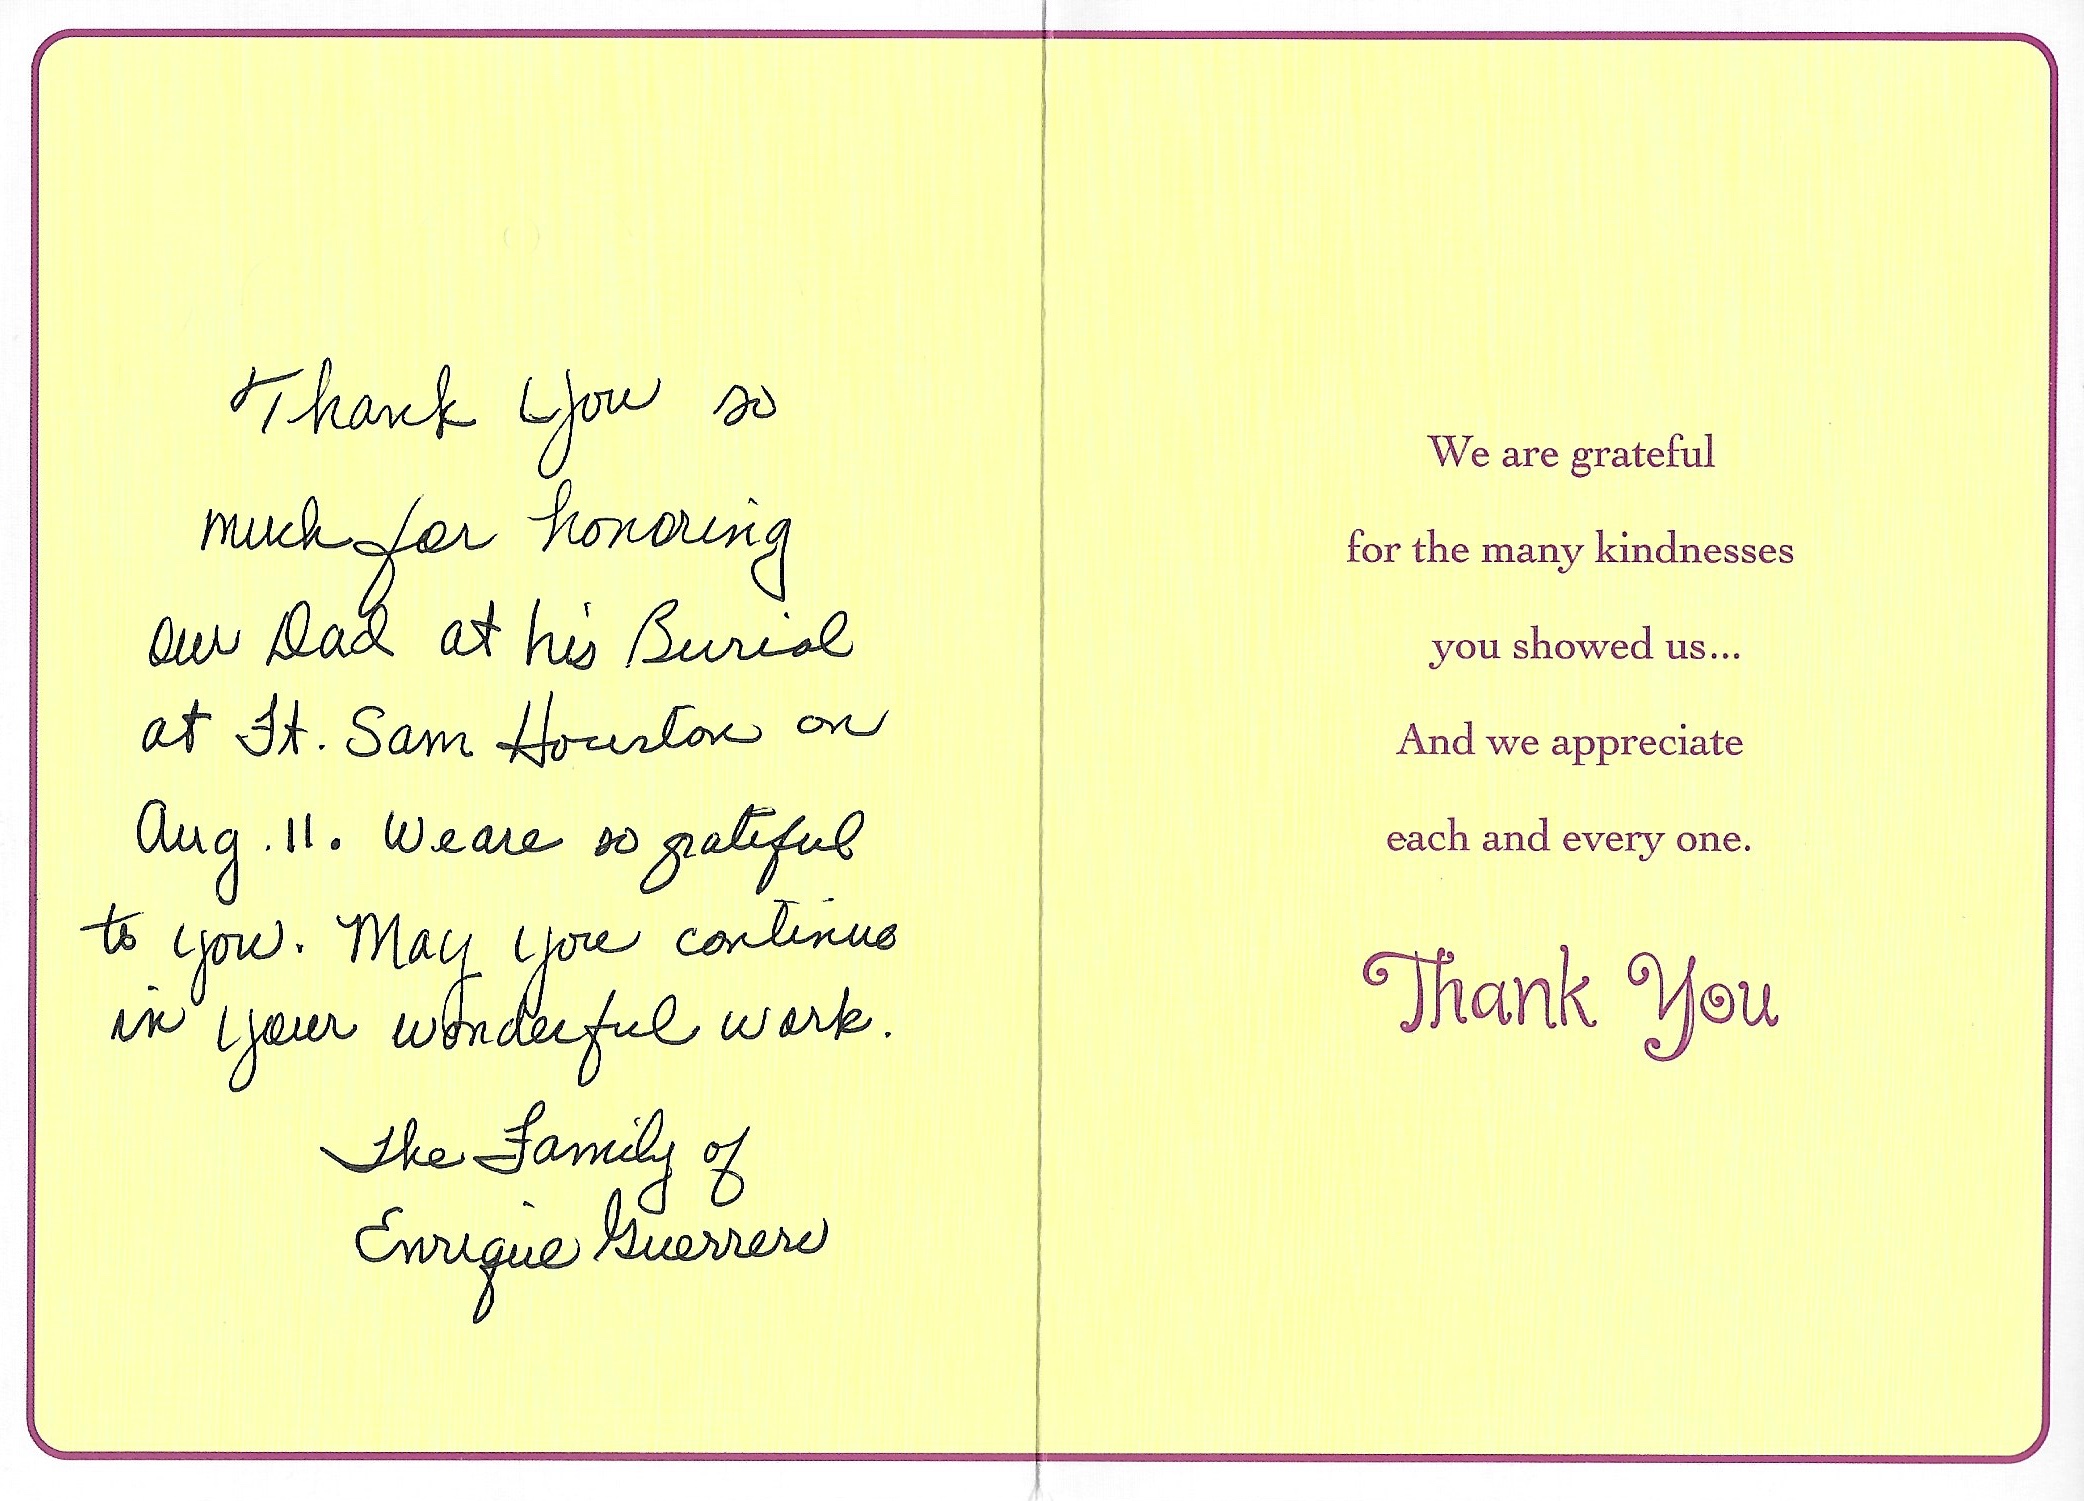 Thank You so
much for honoring
our Dad at his Burial
at Ft. Sam Houston on
Aug. 11. We are so grateful
to you. May you continue
in your wonderful work.
The Family of
Enrique Guerrero
We are grateful
for the many kindnesses
you showed us...
And we appreciate
each and every one.
Thank You